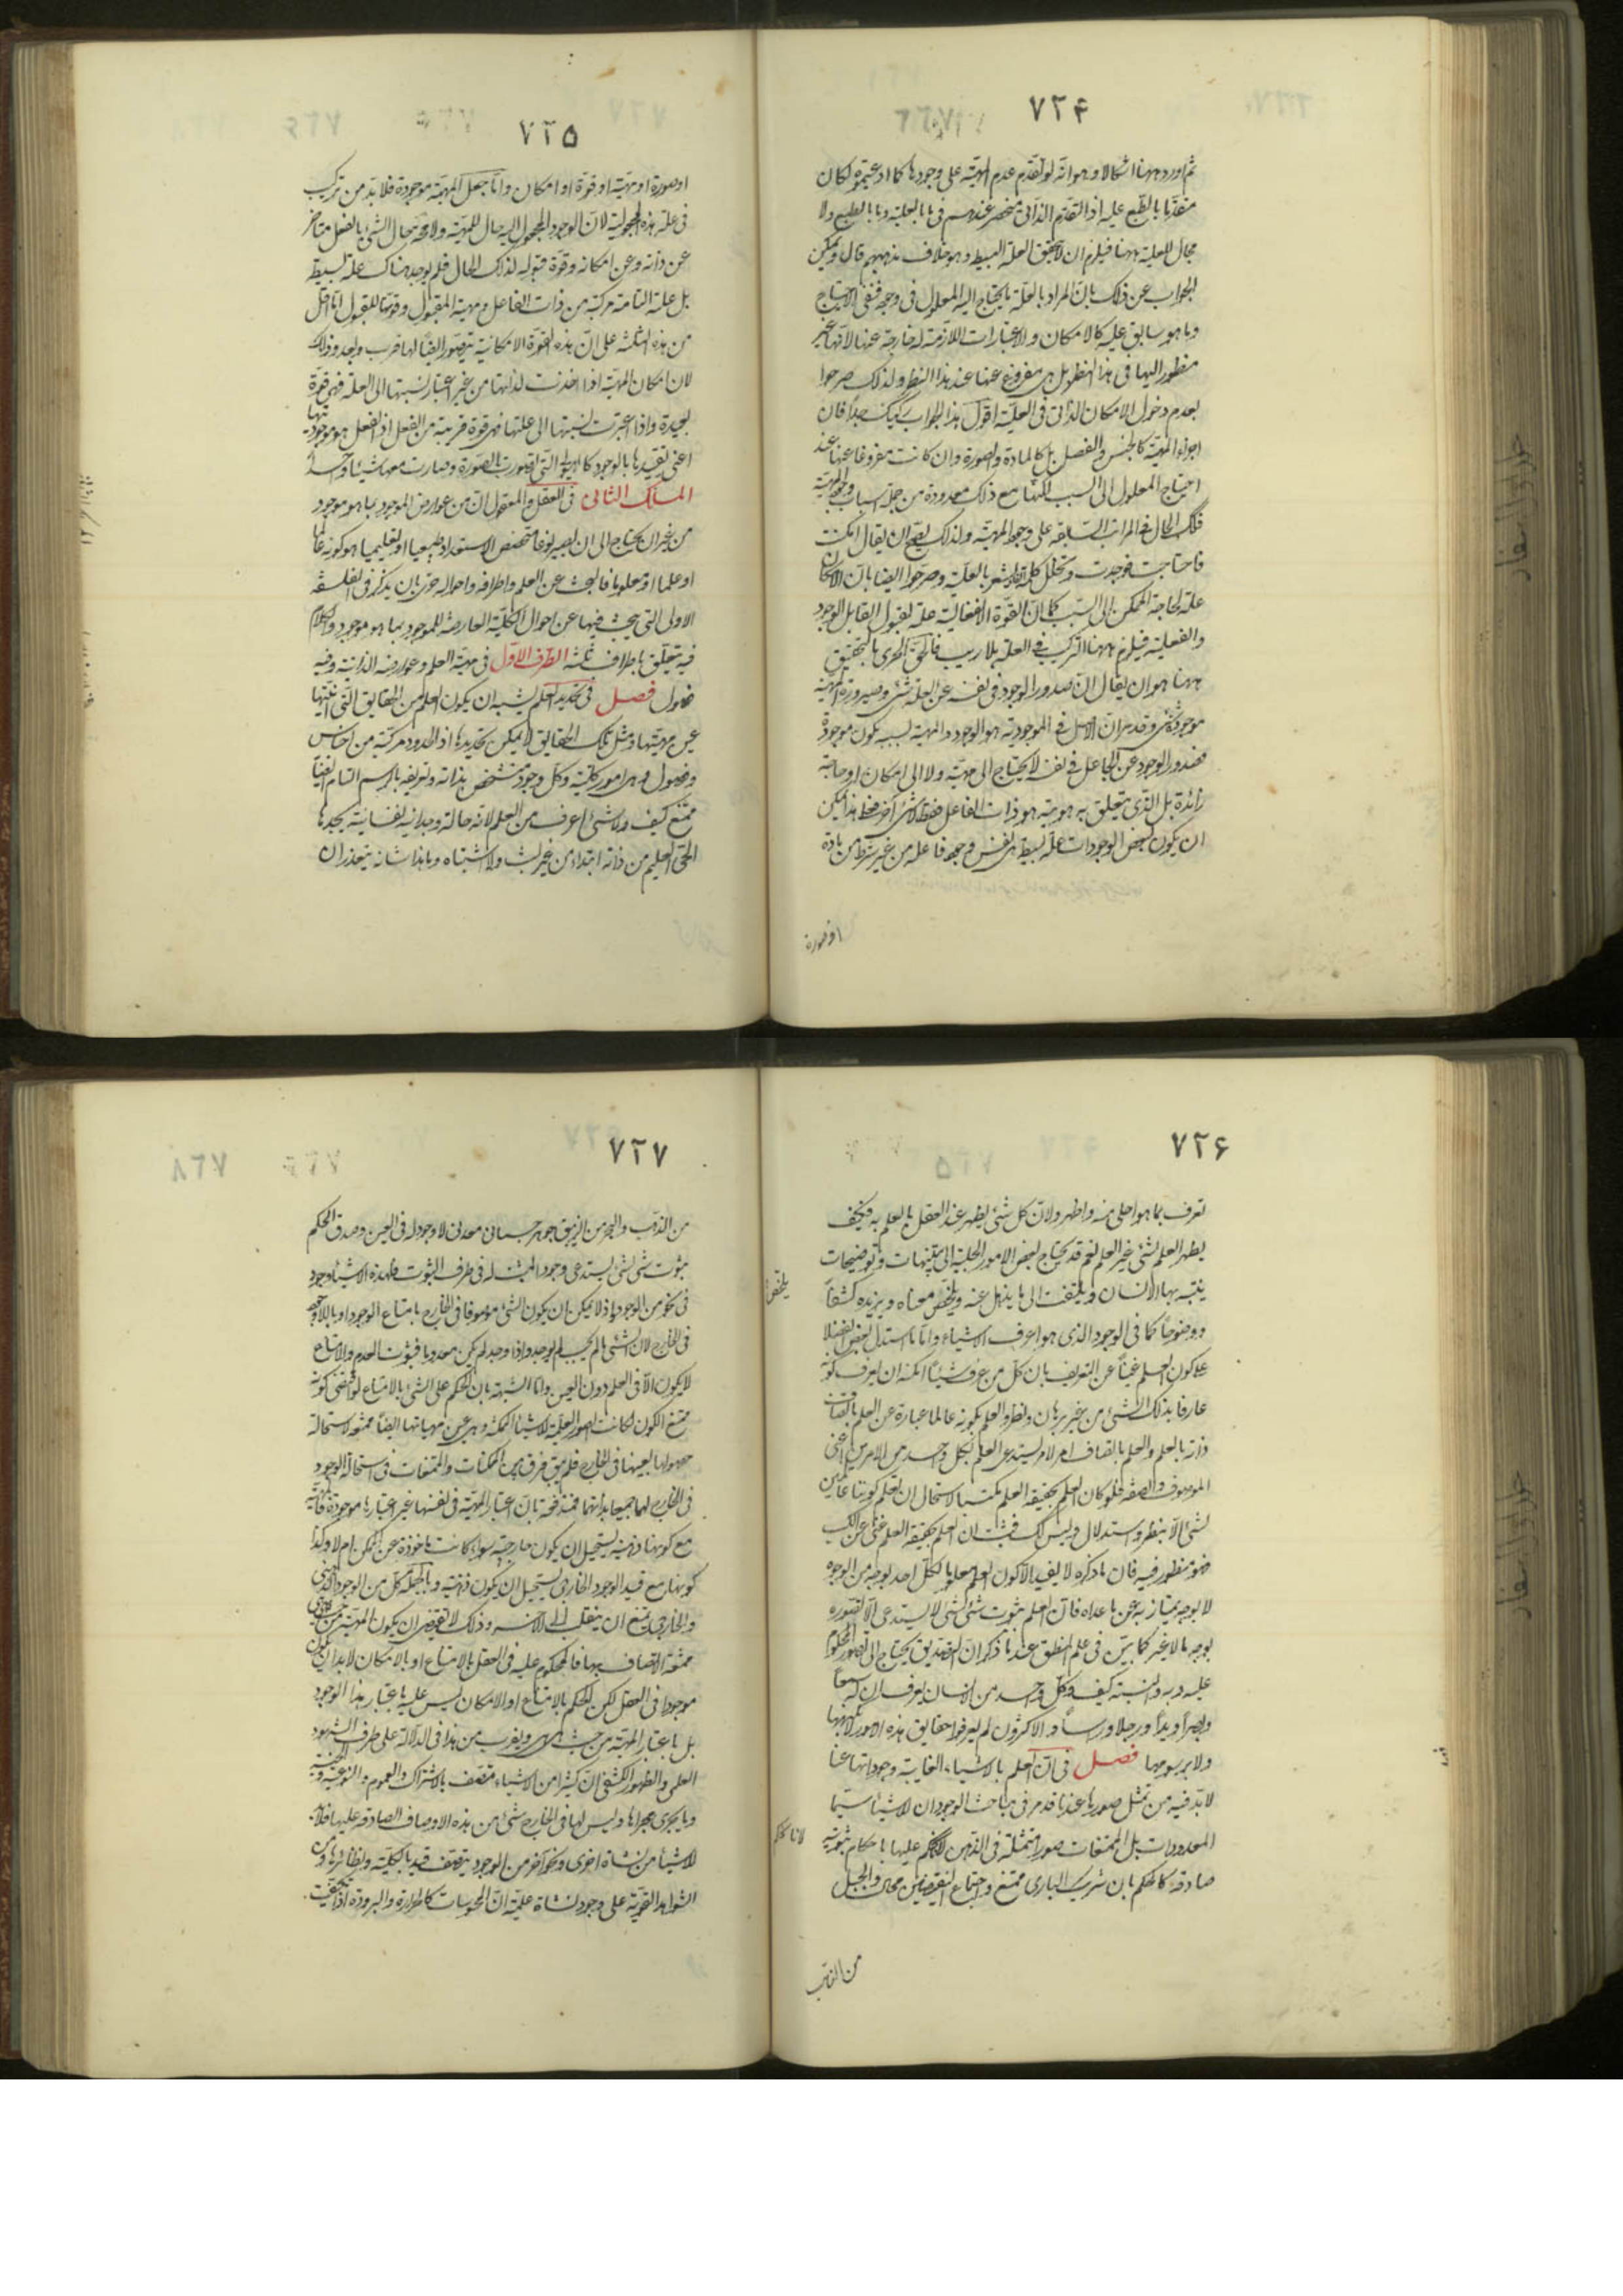 ٧٢۴
ثم اورد ههنا اشكالا وهو انّه لو تقدّم عدم المهيّة على وجودها كما ادعيتموه لكان
متقدّما بالطّبع عليه اذ التقدّم الذّاتى منحصر عندهم فى ما بالعلية وما بالطبع ولا
مجال للعلية ههنا فيلزم ان لا يتحقق العلة البسيطة وهو خلاف مذهبهم قال ويمكن
الجواب عن ذلك بانّ المراد بالعلّة ما يحتاج اليه المعلول فى وجوده فنفى الاحتياج
وما هو سابق عليه كالامكان والاعتبارات اللازمة له خارجة عنها لانّها غير
منظور اليها فى هذا النظر بل هى مفروغ عنها عند هذا النظر ولذلك صرحوا
بعدم دخول الامكان الذّاتى فى العليّة اقول هذا الجواب ركيك جدا فان
اجزاء المهيّة كالجنس والفصل بل كالمادة والصورة وان كانت مفروغا عنها عند
احتياج المعلول الى السبب لكنها مع ذلك معدودة من جملة اسباب وجود المهيّة
فكذلك الحال فى المراتب السّابقة على وجود المهيّة ولذلك يصحّ ان يقال امكنت
فاحتاجت فوجدت وتخلل كلمة الفاء يشعر بالعليّة وصرّحوا ايضا بان الامكان
علة لحاجة الممكن الى السّبب كما انّ القوّة الانفعالية علة لقبول القابل الوجود
والفعلية فيلزم ههنا التركيب فى العلة بلا ريب فالحقّ الحرىّ بالتحقيق
ههنا هو ان يقال انّ صدور الوجود فى نفسه عن العلة شئ وصيرورة المهيّة
موجودة شئ وقد مر ان الاصل فى الموجودية هو الوجود والمهية بسببه يكون موجودة
فصدور الوجود عن الجاعل فى نفسه لا يحتاج الى مهيّة ولا الى امكان او حاجة
زائدة بل الذّى يتعلق به هويته هو ذات الفاعل فقط لا شئ آخر فعلى هذا يمكن
ان يكون لبعض الوجودات علة بسيطة هى نفس وجود فاعله من غير شرط من مادة
او صورة
٧٢۵
او صورة او مهيّة او قوّة او امكان وامّا جعل المهيّة موجودة فلا بدّ من تركيب
فى علة هذه المجعولية لان الوجود المجعول اليه حال للمهيّة ولا محة حال الشئ بالفعل متاخر
عن ذاته وعن امكانه وقوّة قبوله لذلك الحال فلم يوجد هناك علة بسيطة
بل علة التامة مركبة من ذات الفاعل ومهية المقبول وقوتها للقبول امّا اقل
من هذه الثلثة على انّ هذه القوّة الامكانية يتصوّر ايضًا لها قرب وبعد وذلك
لان امكان المهيّة اذا اخذت لذاتها من غير اعتبار نسبتها الى العلة فهى قوّة
بعيدة واذا اعتبرت نسبتها الى علتها فهى قوة قريبة من الفعل اذ الفعل هو موجوديتها
اعنى تقيدها بالوجود كالهيولى التى تصورت بالصّورة وصارت معه شيئا واحدا
المسلك الثالث فى العقل والمعقول انّ من عوارض الموجود بما هو موجود
من غير ان يحتاج الى ان يصير نوعا متخصص الاستعداد طبيعيا او تعليميا هو كونه عالما
او علما او معلوما فالبحث عن العلم واطرافه واحواله حرىّ بان يذكر فى الفلسفة
الاولى التى يبحث فيها عن احوال الكلية العارضة للموجود بما هو موجود والكلام
فيه يتعلق باطراف ثلثة الطرف الاوّل فى مهيّة العلم وعوارضه الذاتية وفيه
فصول فصل فى تحديد العلم يشبه ان يكون العلم من الحقايق التى انّيتها
عين مهيّتها ومثل تلك الحقايق لا يمكن تحديدها اذ الحدود مركبة من اجناس
وفصول وهى امور كليّة وكلّ وجود متشخص بذاته وتعريفه بالرسم التام ايضًا
ممتنع كيف ولا شئ اعرف من العلم لانه حالة وجدانية نفسانية يجدها
الحىّ العليم من ذاته ابتداء من غير لبس ولا اشتباه وما هذا شانه يتعذر ان
٧٢۶
تعرف بما هو اجلى منه واظهر ولانّ كل شئ يظهر عند العقل بالعلم به فكيف
يظهر العلم بشئ غير العلم نعم قد يحتاج بعض الامور الجلية الى تنبيهات وتوضيحات
يتنبّه بها الانسان ويلتفت الى ما يذهل عنه ويلخّص معناه ويزيده كشفًا
ووضوحًا كما فى الوجود الذى هو اعرف الاشياء وامّا ما استدل بعض الفضلا
على كون العلم غنيّا عن التعريف بان كلّ من عرف شيئًا امكنه ان يعرف كونه
عارفا بذلك الشئ من غير برهان ونظر والعلم بكونه عالما عبارة عن العلم باتصاف
ذاته بالعلم والعلم باتصاف امر لامر يستدعى العلم بكل واحد من الامرين اعنى
الموصوف والصفة فلو كان العلم بحقيقة العلم مكتسبا لاستحال ان نعلم كوننا عالمين
لشئ الّا بنظر واستدلال وليس كك فثبت ان العلم بحقيقة العلم غنىّ عن الكسب
فهو منظور فيه فان ما ذكره لا يفيد الّا كون العلم معلوما لكلّ احد بوجه من الوجوه
لا بوجه يمتاز به عن ما عداه فانّ العلم بثبوت شئ لشئ لا يستدعى الّا تصوره
بوجه ما لا غير كما بيّن فى علم المنطق عند ما ذكر انّ التصديق يحتاج الى تصور المحكوم
عليه وبه والنسبة كيف وكلّ واحد من الانسان يعرف ان له سمعا
وبصرًا ويدًا ورجلا وراسًا والاكثرون لم يعرفوا حقايق هذه الامور لا بكنهها
ولا برسومها فصل فى انّ العلم بالاشياء الغايبة وجوداتها عنا
لا بدّ فيه من تمثل صورها عندنا قد مر فى مباحث الوجود ان للاشياء سيّما
المعدومات بل الممتنعات صورا متمثلة فى الذّهن لانا نحكم عليها باحكام ثبوتية
صادقة كالحكم بان شريك البارى ممتنع واجتماع النقيضين محال والجبل
من الذهب
يلخص
لانا نحكم
٧٢٧
من الذّهب والبحر من الزيبق جوهر جسمانى معدنى لا وجود له فى العين وصدق الحكم
بثوت شئ لشئ يستدعى وجود المثبت له فى ظرف الثبوت فلهذه الاشياء وجود
فى نحو من الوجود اذ لا يمكن ان يكون الشئ موصوفا فى الخارج بامتناع الوجود او باللاوجود
فى الخارج لان الشئ ما لم يجب لم يوجد واذا وجد لم يكن معدوما فثبوت العدم والامتناع
لا يكون الّا فى العلم دون العين وامّا الشبهة بان الحكم على الشئ بالامتناع لو اقتضى كونه
ممتنع الكون لكانت الصور العلميّة للاشياء الممكنة وهى عين مهياتها ايضًا ممتنعه لاستحالة
حصولها بعينها فى الخارج فلم يبق فرق بين الممكنات والممتنعات فى استحالة الوجود
فى الخارج لهما جميعا بذاتهما فمندفعة بان اعتبار المهيّة فى نفسها غير اعتبارها موجودة فالمهيّة
مع كونها ذهنية يستحيل ان يكون خارجيّة سواء كانت ماخوذة عن الممكن ام لا وكذا
كونها مع قيد الوجود الخارجى يستحيل ان يكون ذهنية وبالجملة كلّ من الوجود الذهنى
والخارجى يمتنع ان ينقلب الى الآخر وذلك لا يقتضى ان يكون المهيّة من حيث هى
ممتنعة الاتصاف بهما فالمحكوم عليه فى العقل بالامتناع او بالامكان لا بد ان يكون
موجودا فى العقل لكن الحكم بالامتناع او الامكان ليس عليه باعتبار هذا الوجود
بل باعتبار المهيّة من حيث هى ويقرب من هذا فى الدلالة على ظرف الشهود
العلمى والظهور الكشفى انّ كثيرا من الاشياء متّصف بالاشتراك والعموم والنوعية والجنسية
وما يجرى مجراها وليس لها فى الخارج شئ من هذه الاوصاف الصادقة عليها فلابد
للاشياء من نشأة اخرى ونحو آخر من الوجود يتصّف فيه بالكليّة ونظائرها ومن
الشواهد القويّة على وجود نشاة علميّة انّ المحسوسات كالحرارة والبرودة اذا تكيّفت